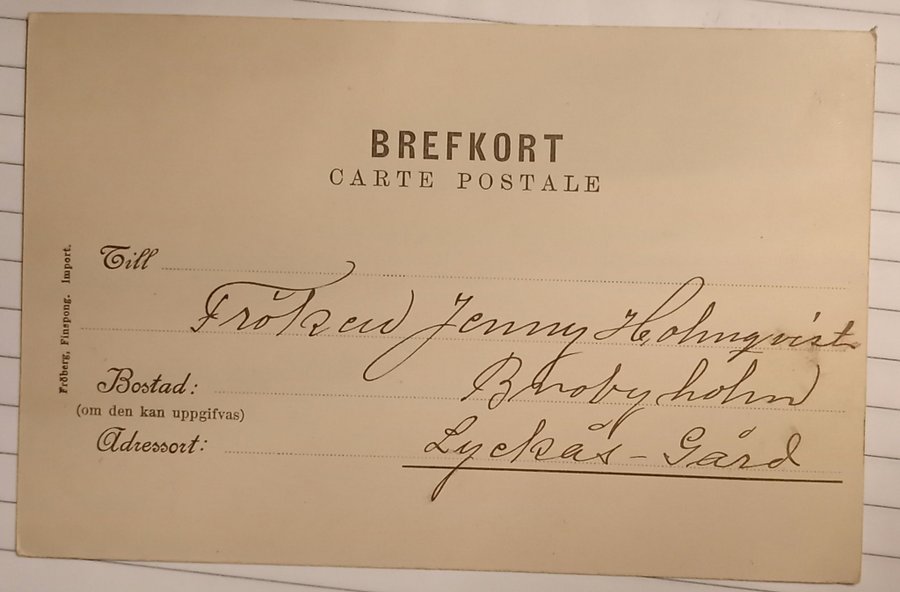 BREFKORT
CARTE POSTALE
Till
Fröken Jenny Holmqvist
Bostad:
Broby holm
(om den kan uppgifvas)
Adressort:
Lyckås - Gård
Fröberg, Finspong. Import.